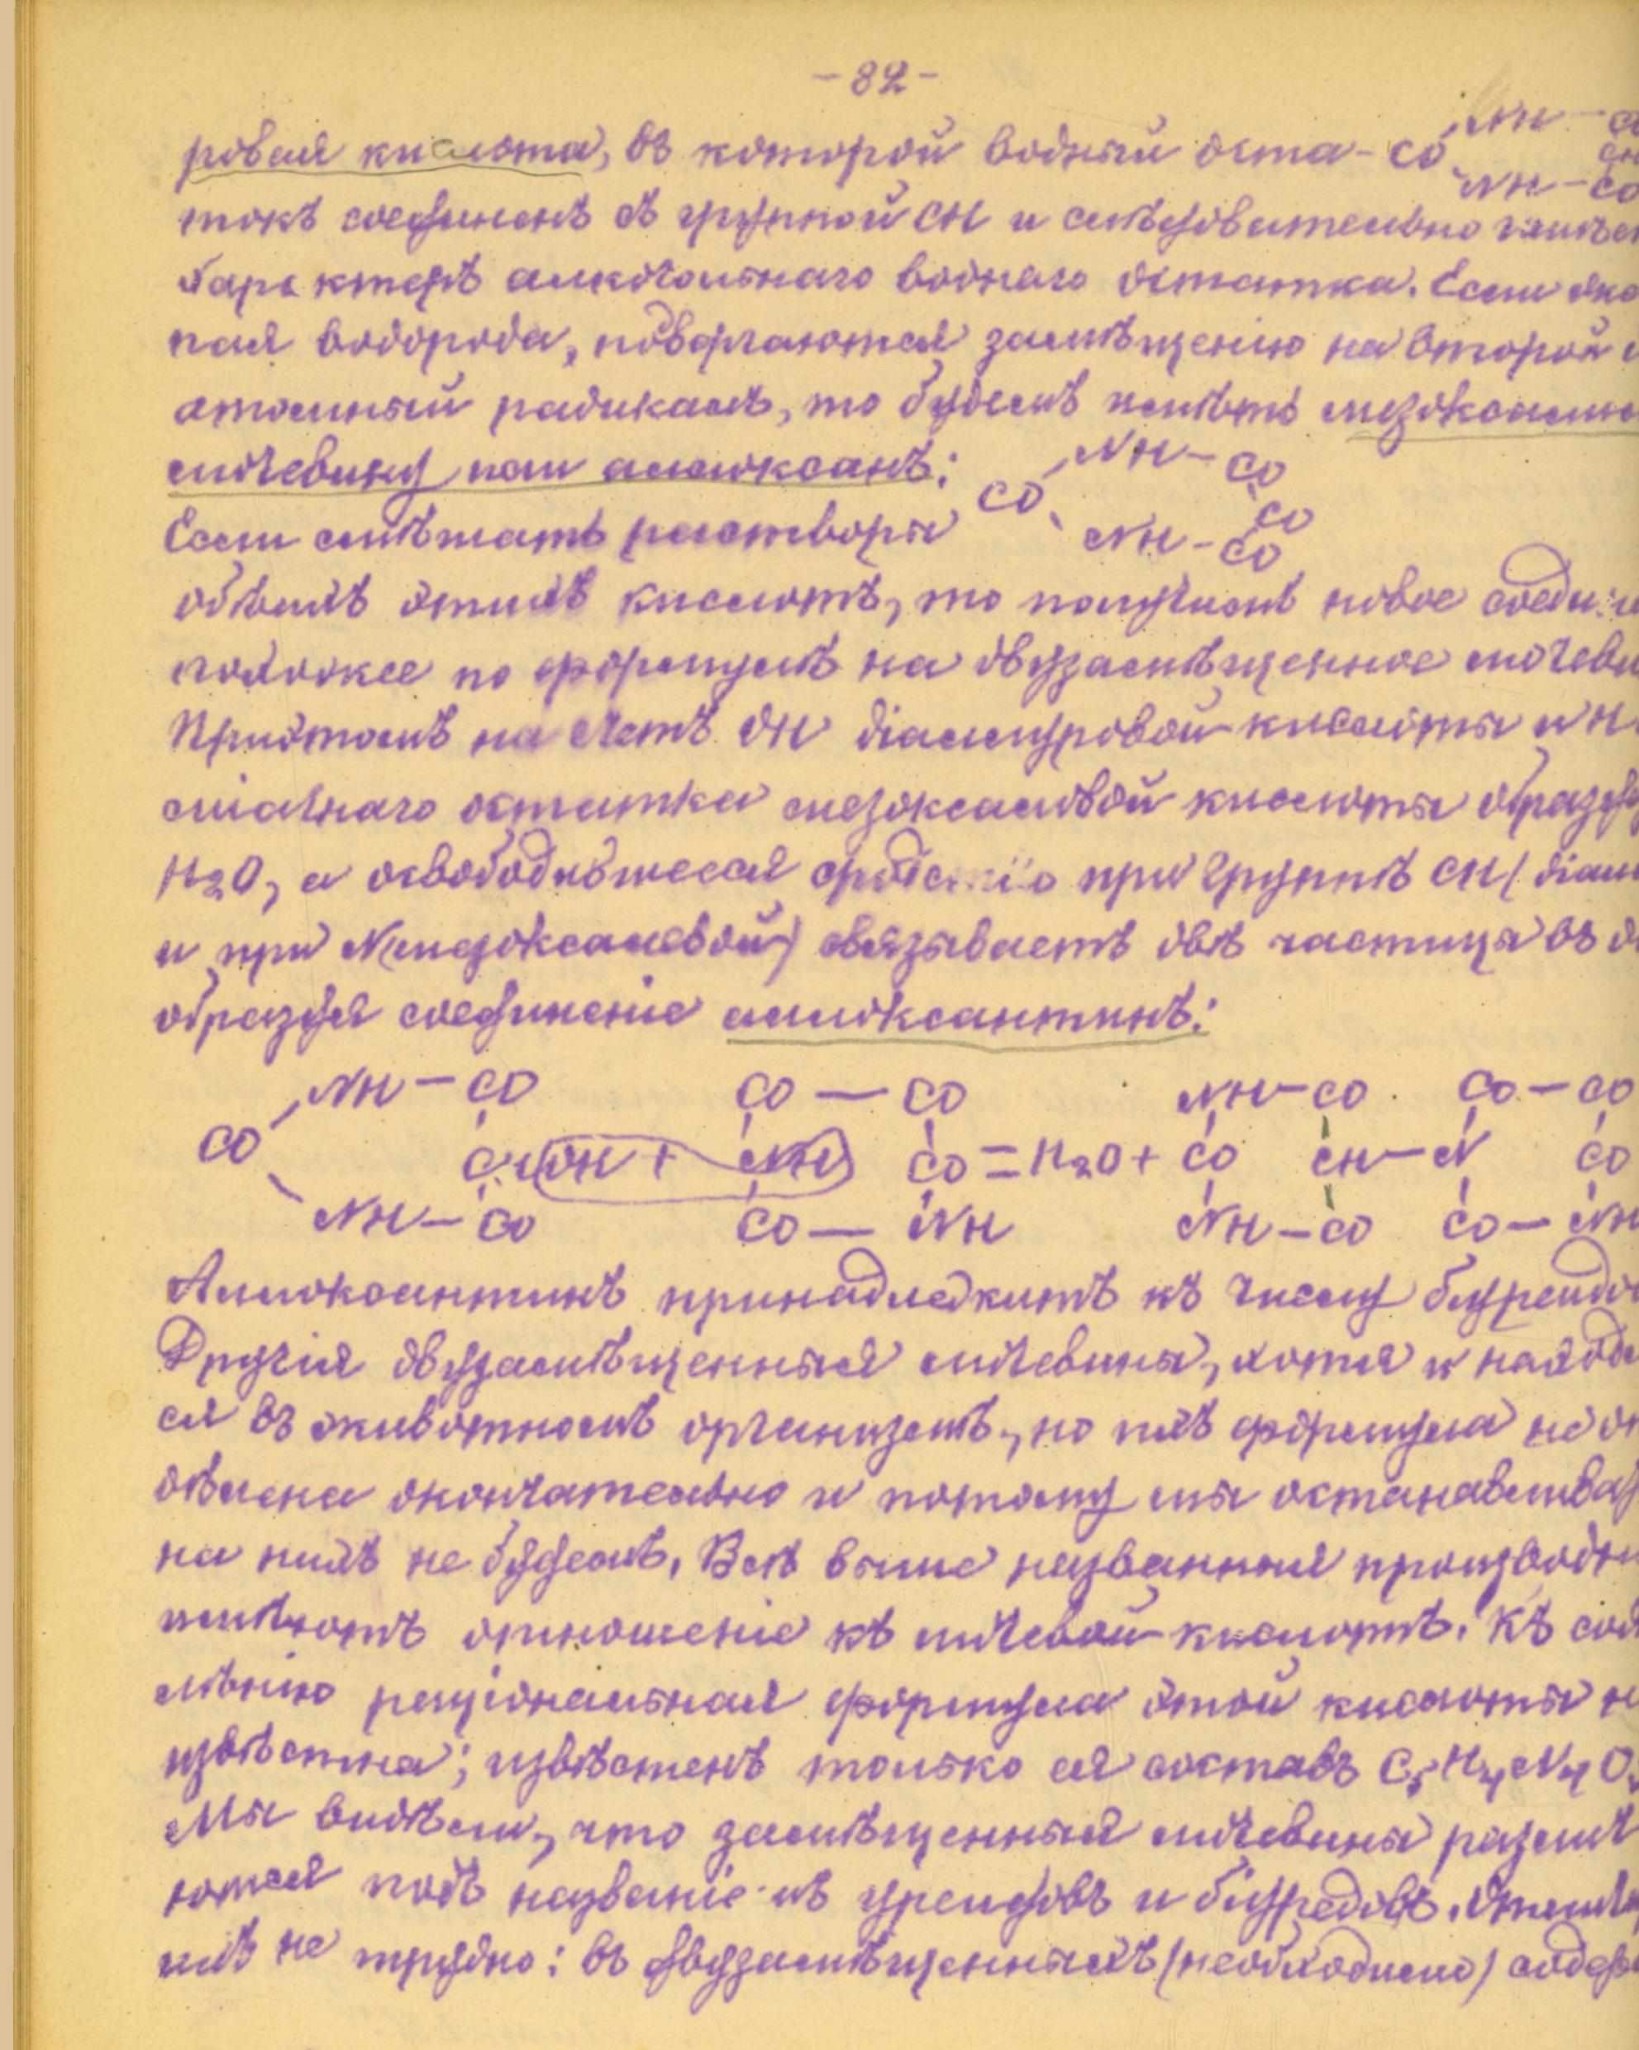 -82-
ровая кислота, въ которой водный оста- CO NH- CO
NH-CO
токъ соединенъ съ группой CH и слѣдовательно имѣе
характеръ алкогольнаго воднаго остатка. Если
пая водорода, подвергаются замѣщенію на второй
атомный радикалъ, то будемъ имѣть мезоксалил
мочевину или аллоксанъ: CO NH-CO
CO
Если смѣшать растворы NH-CO
обѣихъ этихъ кислотъ, то получимъ новое соеди
похожее по формулѣ на двузамѣщенное мочеви
Притомъ на счетъ OH діалуровой кислоты и H
міачнаго остатка мезоксаловой кислоты образу
H2O, а освободившееся сродство при группѣ CH (діал
и при N мезоксаловой) связываетъ двѣ частицы въ
образуя соединеніе аллоксантинъ:
NH-CO CO-CO NH-CO CO-CO
CO CHOH + NH CO = H2O + CO CH-N CO
NH-CO CO-NH NH-CO CO-NH
Аллоксантинъ принадлежитъ къ числу біуреидо
Другія двузамѣщенныя мочевины, хотя и находя
ся въ животномъ организмѣ, но ихъ формула не
дѣлена окончательно и потому мы останавлива
на нихъ не будемъ. Всѣ выше названныя производн
имѣютъ отношеніе къ мочевой кислотѣ. Къ сож
лѣнію раціональная формула этой кислоты н
извѣстна; извѣстенъ только ея составъ C5H4N4O
Мы видѣли, что замѣщенныя мочевины
ются подъ названіемъ уреидовъ и біуредовъ.
ихъ не трудно: въ двузамѣщенныхъ (необходимо) содер